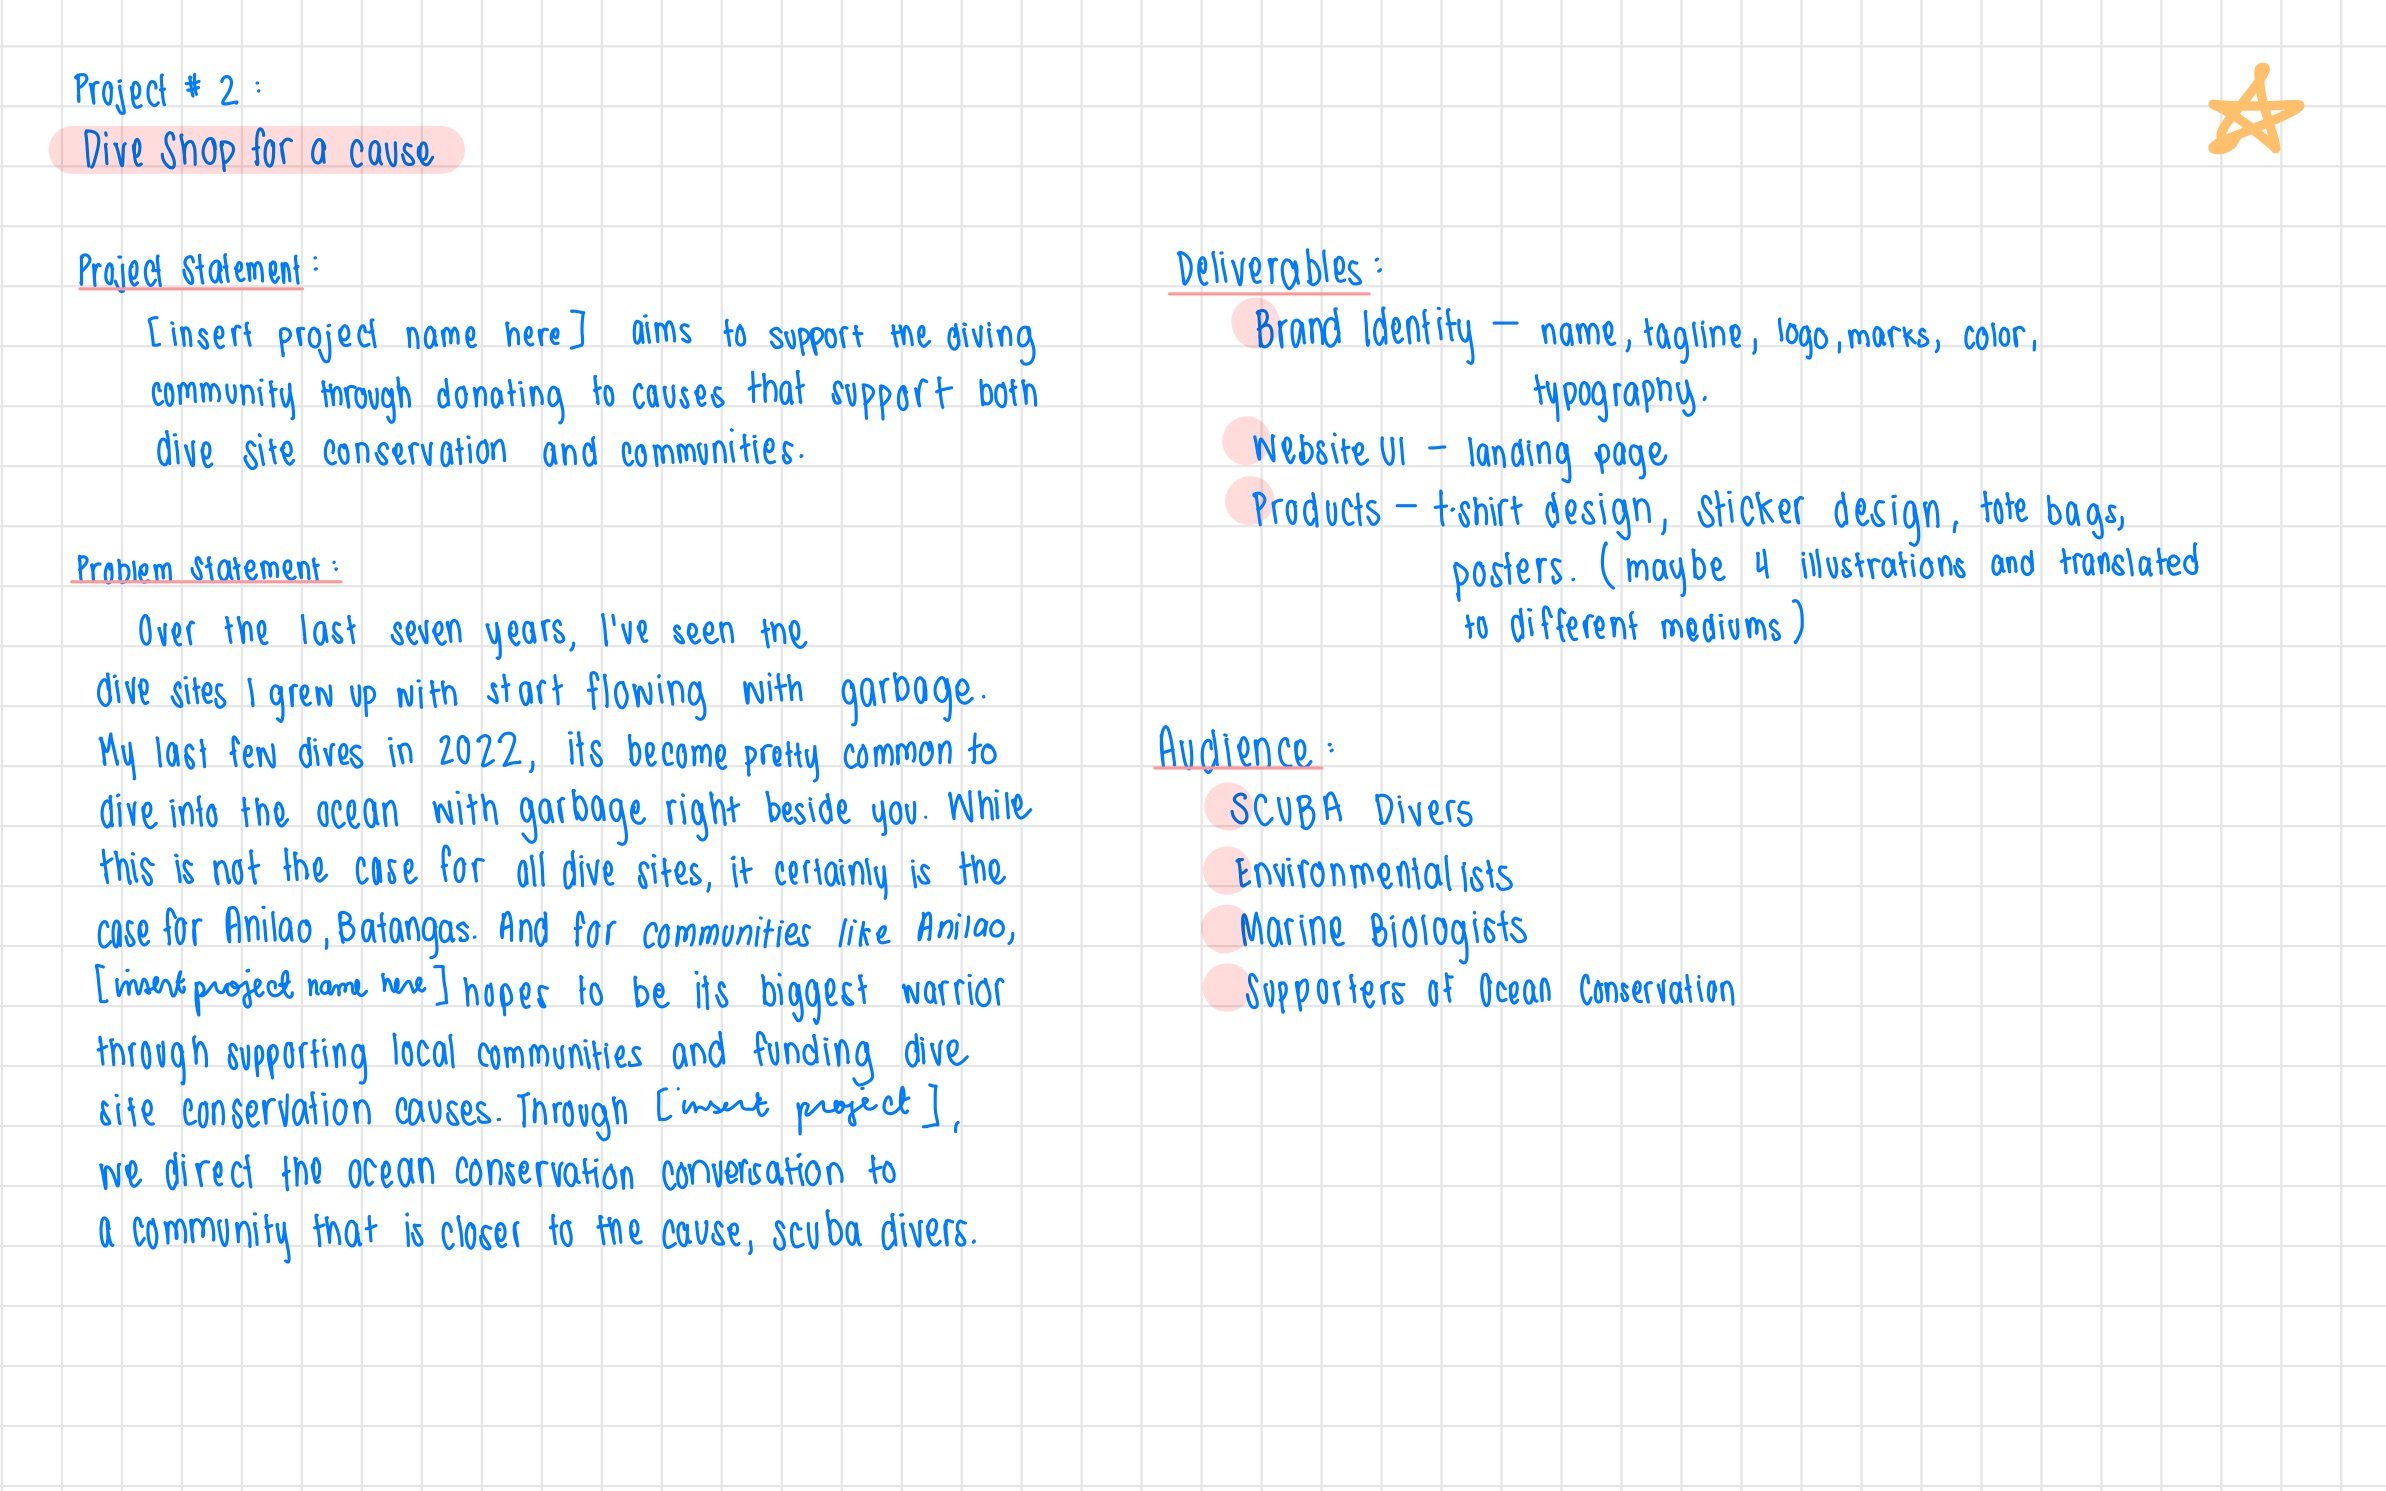 Project # 2 :
Dive Shop for a cause
Project Statement :
[insert project name here] aims to support the diving
community through donating to causes that support both
dive site conservation and communities.
Problem Statement :
Over the last seven years, I've seen the
dive sites I grew up with start flowing with garbage.
My last few dives in 2022, its become pretty common to
dive into the ocean with garbage right beside you. While
this is not the case for all dive sites, it certainly is the
case for Anilao, Batangas. And for communities like Anilao,
[insert project name here] hopes to be its biggest warrior
through supporting local communities and funding dive
site conservation causes. Through [insert project],
we direct the ocean conservation conversation to
a community that is closer to the cause, scuba divers.
Deliverables :
Brand Identity – name, tagline, logo, marks, color,
typography.
Website UI – landing page
Products – t-shirt design, sticker design, tote bags,
posters. (maybe 4 illustrations and translated
to different mediums)
Audience :
SCUBA Divers
Environmentalists
Marine Biologists
Supporters of Ocean Conservation